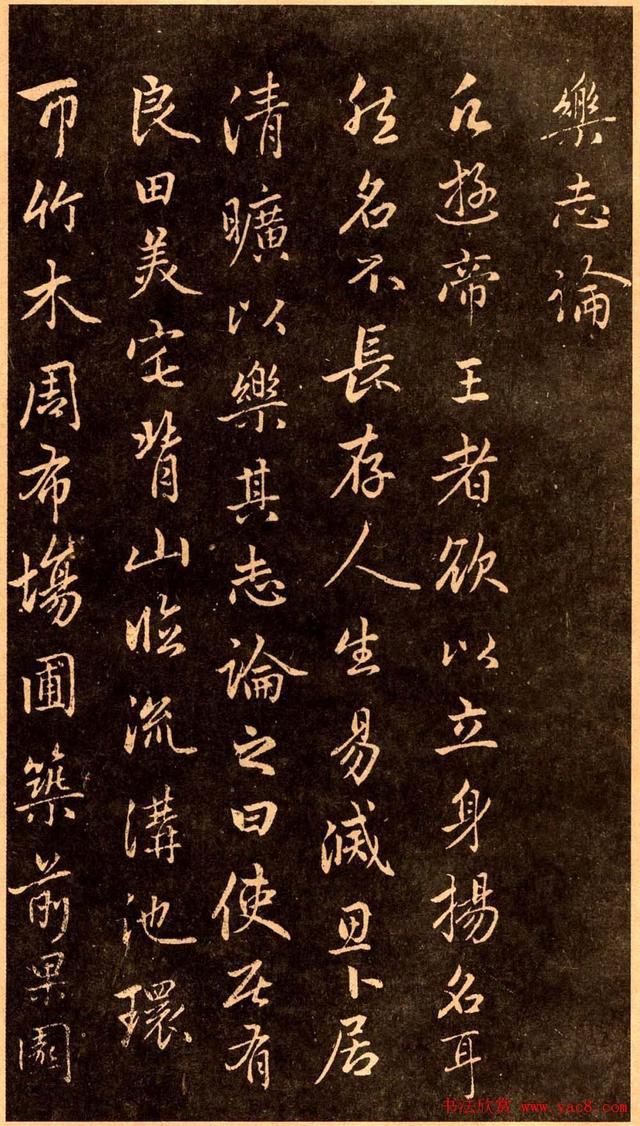 樂志論
凡遊帝王者欲以立身揚名耳
然名不長存人生易滅思卜居
清曠以樂其志論之曰使居有
良田美宅背山臨流溝池環
帀竹木周布塲圃築前果園
书法欣赏 www.yac8.com